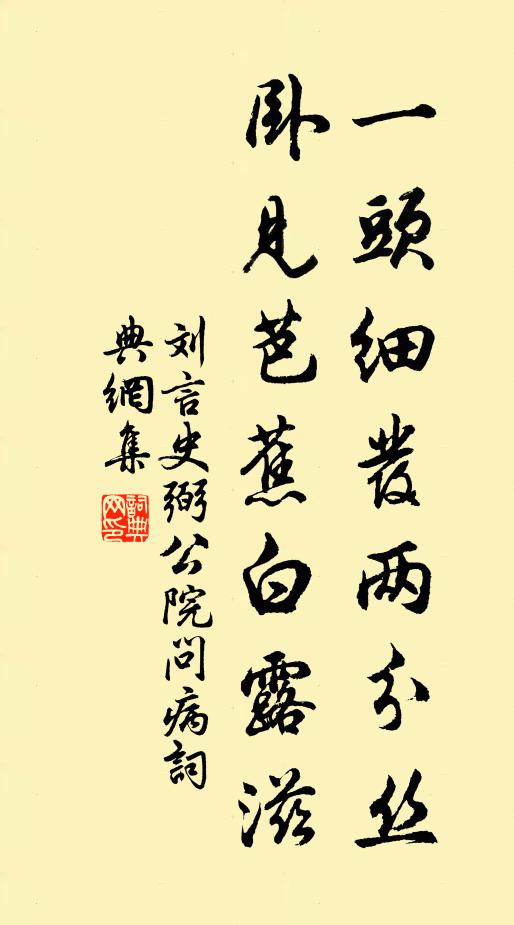 一頭細發兩分丝
卧見芭蕉白露滋
刘言史弼公院问病詞
典網集
詞典网印